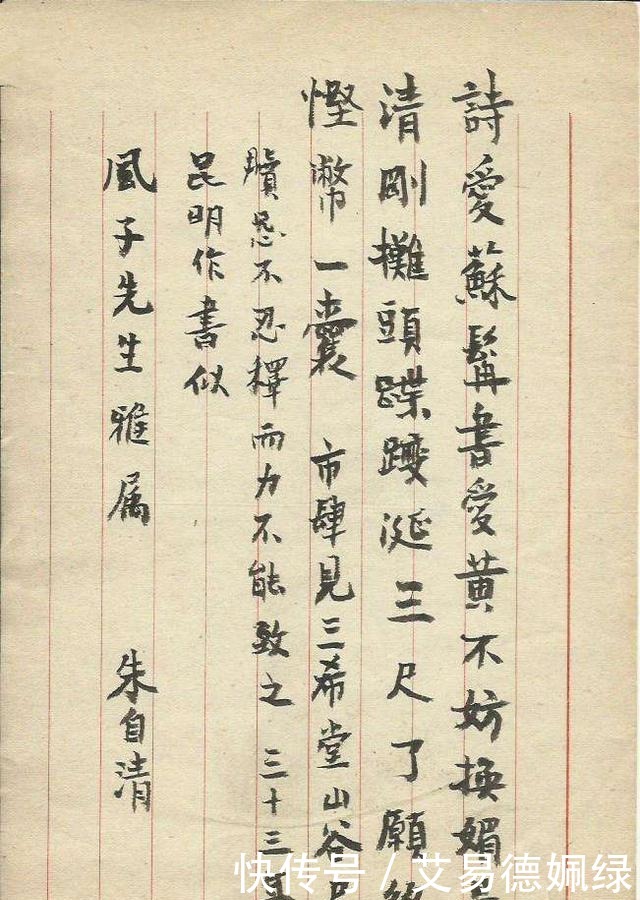 詩愛蘇髯書愛黃不妨嫵媚
清剛攤頭蹀躞涎三尺了願
慳幣一囊 市肆見三希堂山谷尺
牘愛不忍釋而力不能致之 三十三年
昆明作書似
風子先生雅属 朱自清
快传号 / 艾易德姵绿